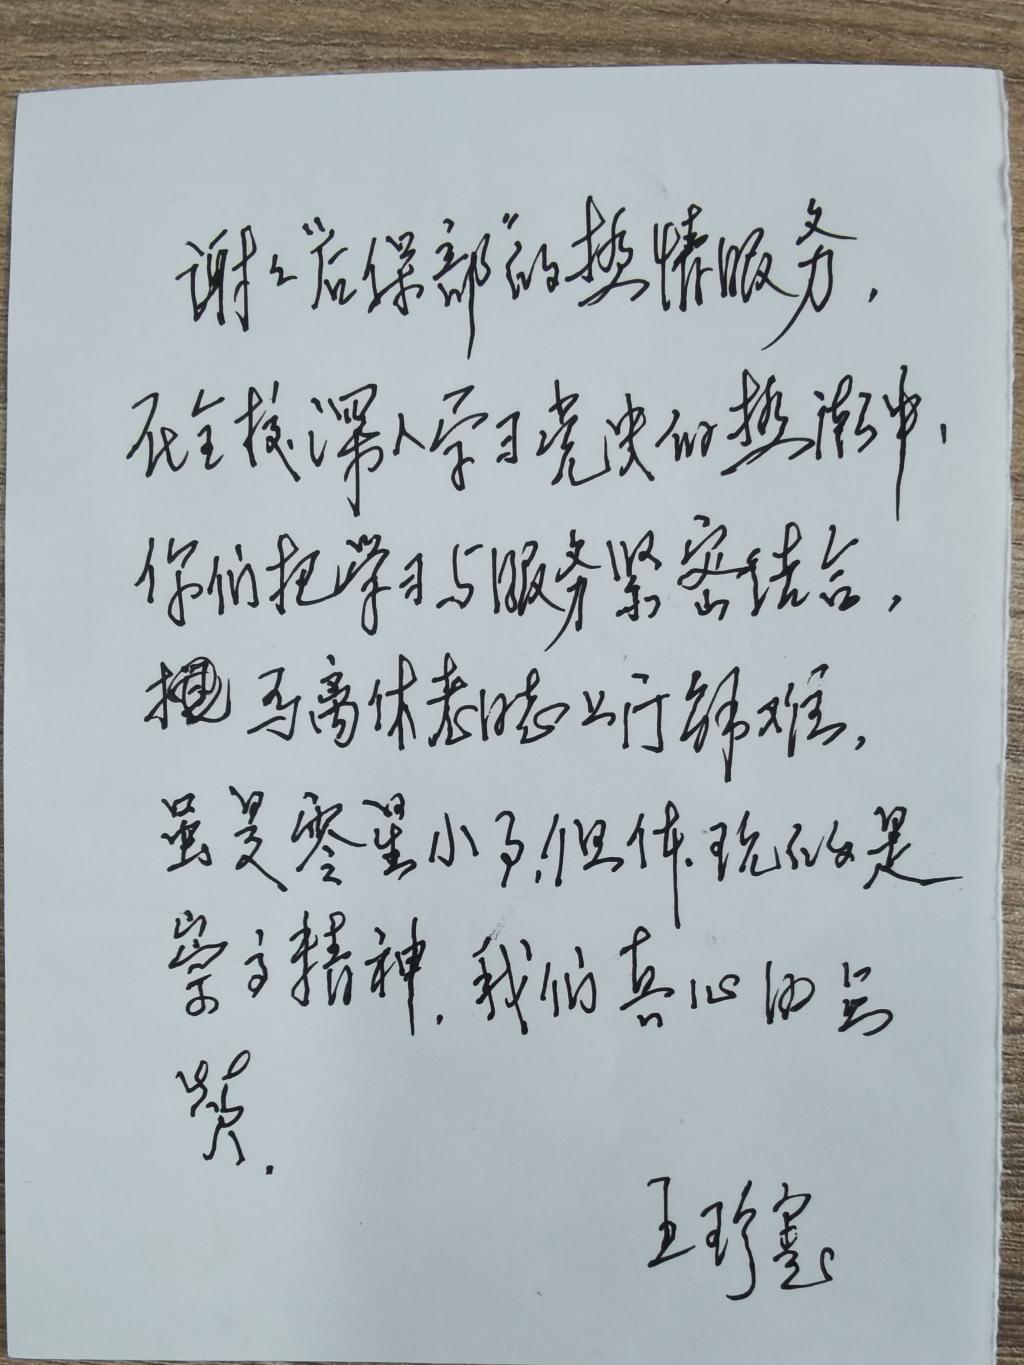 谢谢“后保部”的热情服务，
在全校深入学习党史的热潮中，
你们把学习与服务紧密结合，
为离休老同志上门解难，
虽是零星小事，但体现的是
崇高精神。我们真心的点
赞。
王珍